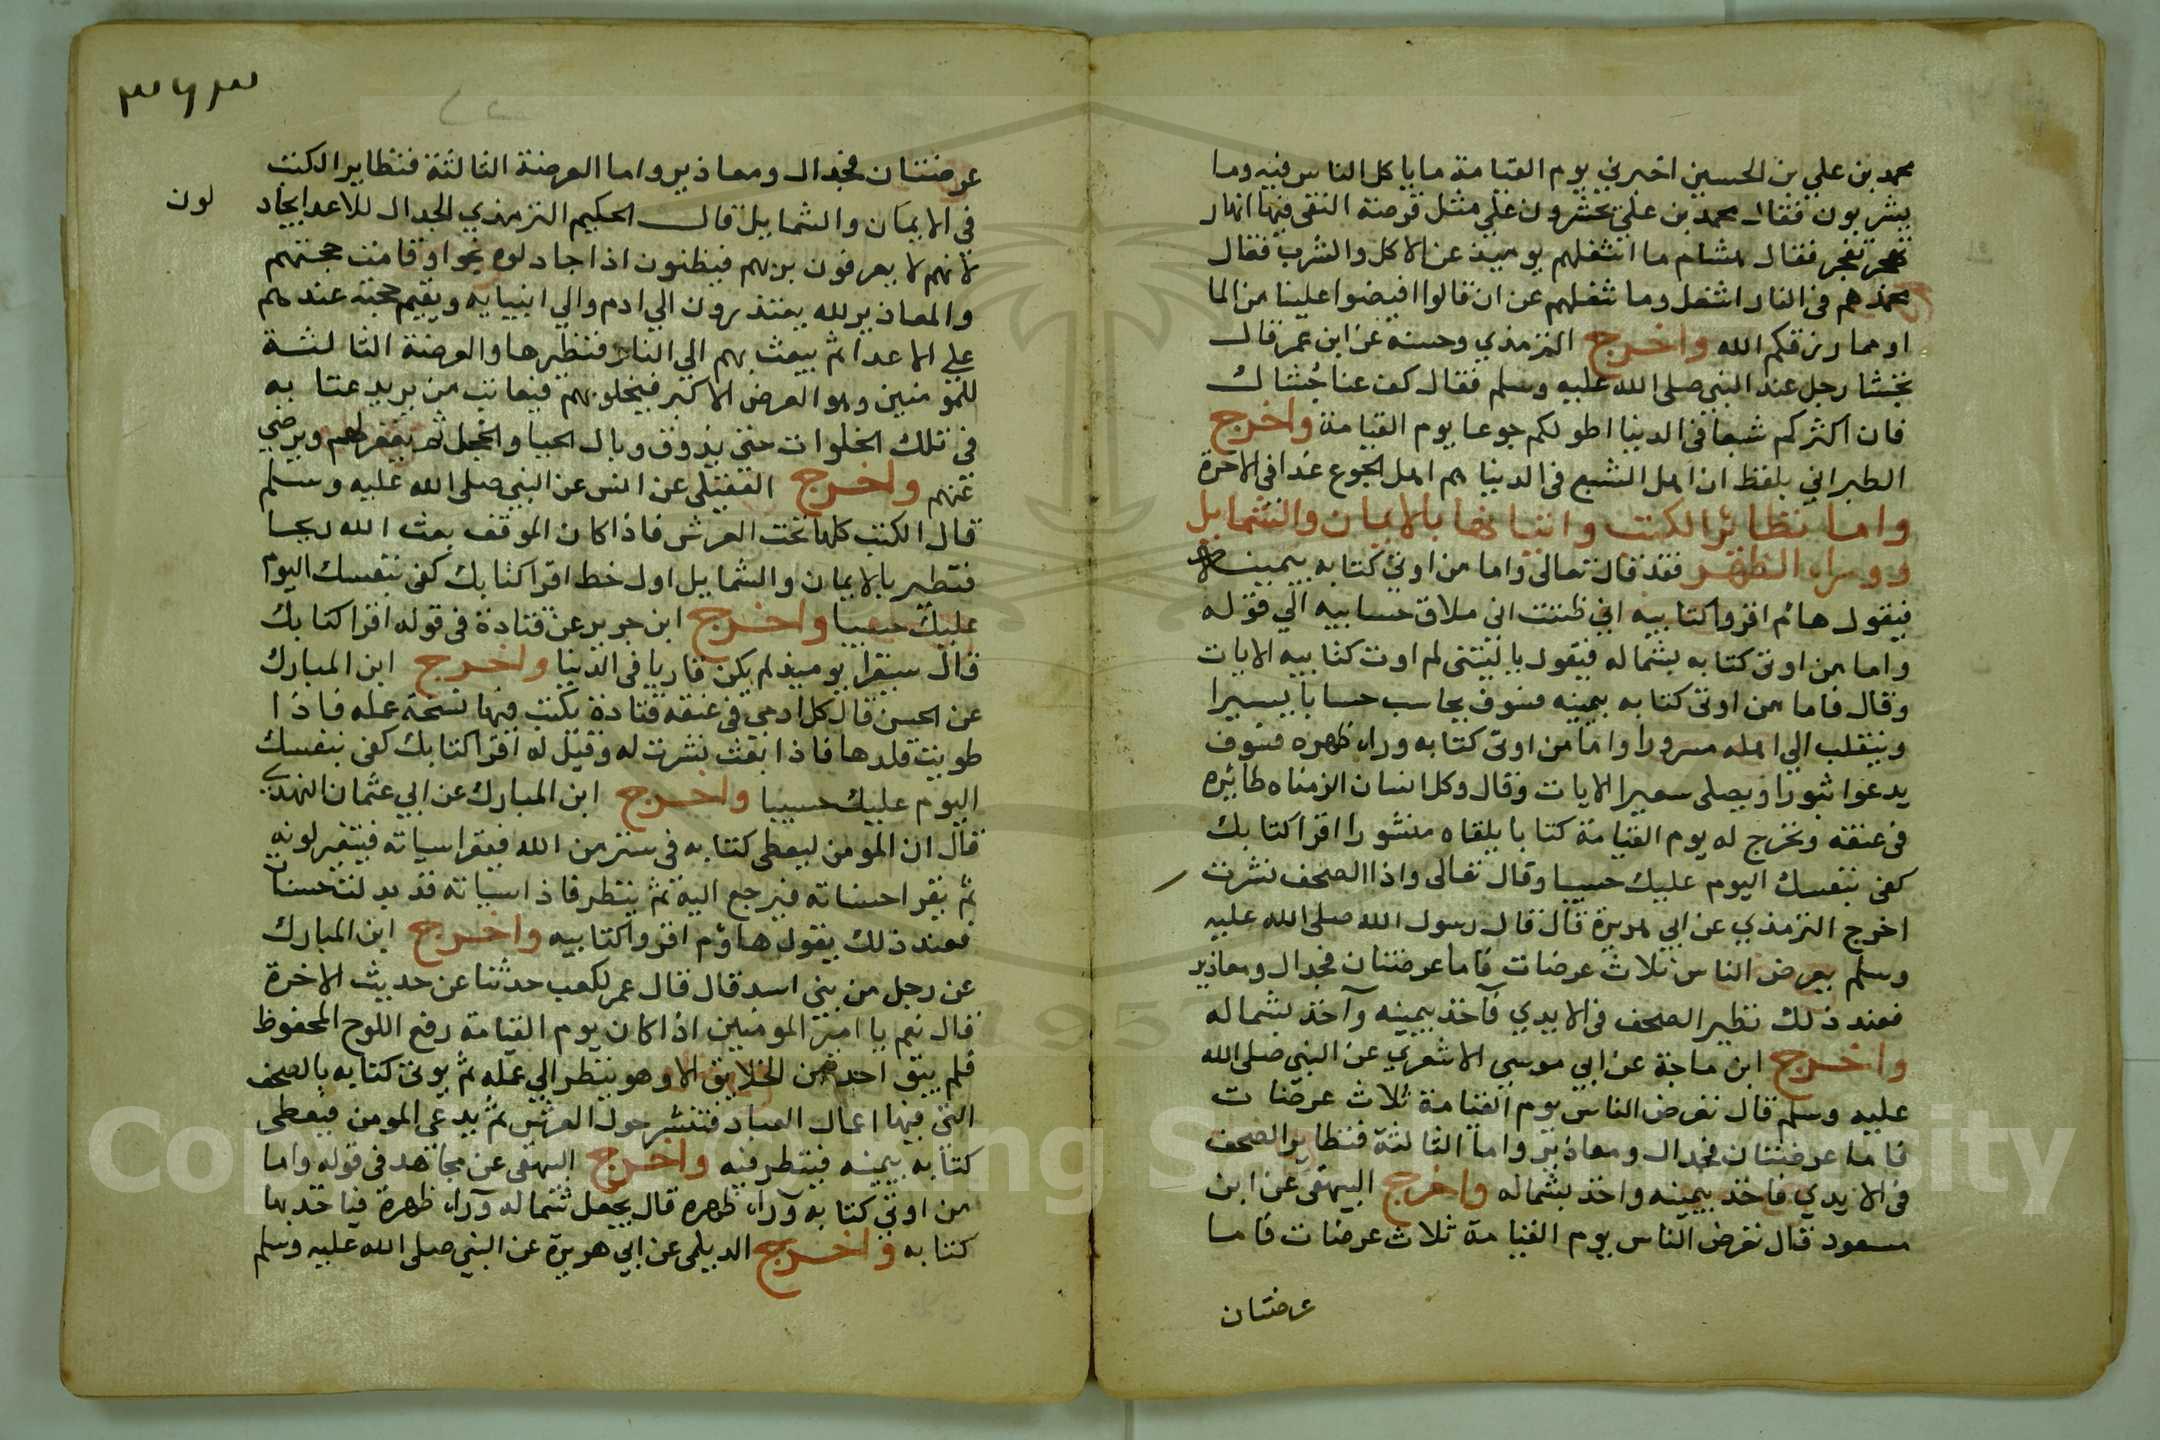 محمد بن علي بن الحسين اخبرني يوم القيامة ما ياكل الناس فيه وما
يشربون فقال محمد بن علي يحشرون علي مثل قرصة النقي فيها انهار
تفجر فقال هشام ما اشغلهم يوميذ عن الاكل والشرب فقال
محمد هم في النار اشغل وما شغلهم عن ان قالوا افيضوا علينا من الما
او مما رزقكم الله واخرج الترمذي وحسنه عن ابن عمر قال
تجشا رجل عند النبي صلى الله عليه وسلم فقال كف عنا جُشاك
فان اكثركم شبعا في الدنيا اطولكم جوعا يوم القيامة واخرج
الطبراني بلفظ ان اهل الشبع في الدنيا هم اهل الجوع غدا في الاخرة
واما تطائر الكتب واتيانها بالايمان والشمايل
ووراء الظهر فقد قال تعالى واما من اوتي كتابه بيمينه
فيقول هائم اقروا كتابيه اني ظننت اني ملاق حسابيه الي قوله
واما من اوتي كتابه بشماله فيقول ياليتني لم اوت كتابيه الايات
وقال فاما من اوتي كتابه بيمينه فسوف يحاسب حسابا يسيرا
وينقلب الي اهله مسرورا واما من اوتي كتابه وراء ظهره فسوف
يدعوا ثبورا ويصلى سعيرا الايات وقال وكل انسان الزمناه طائره
في عنقه ونخرج له يوم القيامة كتابا يلقاه منشورا اقرا كتابك
كفي بنفسك اليوم عليك حسيبا وقال تعالى واذا الصحف نشرت
اخرج الترمذي عن ابي هريرة قال قال رسول الله صلى الله عليه
وسلم يعرض الناس ثلاث عرضات فاما عرضتان فجدال ومعاذير
فعند ذلك تطير الصحف في الايدي فآخذ بيمينه وآخذ بشماله
واخرج ابن ماجة عن ابي موسي الاشعري عن النبي صلى الله
عليه وسلم قال تعرض الناس يوم القيامة ثلاث عرضات
فاما عرضتان فجدال ومعاذير واما الثالثة فتطاير الصحف
في الايدي فاخذ بيمينه واخذ بشماله واخرج البيهقي عن ابن
مسعود قال تعرض الناس يوم القيامة ثلاث عرضات فاما
عرضتان
٣٦٣
عرضتان فجدال ومعاذير واما العرضة الثالثة فتطاير الكتب
في الايمان والشمايل قال الحكيم الترمذي الجدال للاعدا يجاد
لون
لانهم لا يعرفون بربهم فيظنون اذا جادلوه نجوا وقامت حجتهم
والمعاذير لله يعتذرون الي ادم والي انبيايه ويقيم حجته عندهم
علي الاعدا ثم يبعث بهم الي النار فتطيرها والعرضة الثالثة
للمومنين وهو العرض الاكبر فيخلو بهم فيعاتب من يريد عتابه
في تلك الخلوات حتي يذوق وبال الحيا والخجل ثم يغفر لهم ويرضي
عنهم واخرج العقيلي عن انس عن النبي صلى الله عليه وسلم
قال الكتب كلها تحت العرش فاذا كان الموقف بعث الله ريحا
فتطير بالايمان والشمايل اول خط اقرا كتابك كفي بنفسك اليوم
عليك حسيبا واخرج ابن جرير عن قتادة في قوله اقرا كتابك
قال سيقرا يوميذ لم يكن قاريا في الدنيا واخرج ابن المبارك
عن الحسن قال كل ادمي في عنقه قتادة تكتب فيها نسخة عمله فاذا
طويت قلدها فاذا بعث نشرت له وقيل له اقرا كتابك كفي بنفسك
اليوم عليك حسيبا واخرج ابن المبارك عن ابي عثمان النهدي
قال ان المومن ليعطي كتابه في ستر من الله فيقرا سياته فيتغير لونه
ثم يقرا حسناته فيرجع اليه ثم ينظر فاذا سياته قد بدلت حسنات
فعند ذلك يقول هاؤم اقروا كتابيه واخرج ابن المبارك
عن رجل من بني اسد قال قال عمر لكعب حدثنا عن حديث الاخرة
قال نعم يا امير المومنين اذا كان يوم القيامة رفع اللوح المحفوظ
فلم يبق احد من الخلايق الا وهو ينظر الي عمله ثم يوتي كتابه بالصحف
التي فيها اعمال العباد فتنشر حول العرش ثم يدعي المومن فيعطي
كتابه بيمينه فينظر فيه واخرج البيهقي عن مجاهد في قوله واما
من اوتي كتابه وراء ظهره قال يجعل شماله وراء ظهرة فياخذ بها
كتابه واخرج الديلمي عن ابي هريرة عن النبي صلى الله عليه وسلم